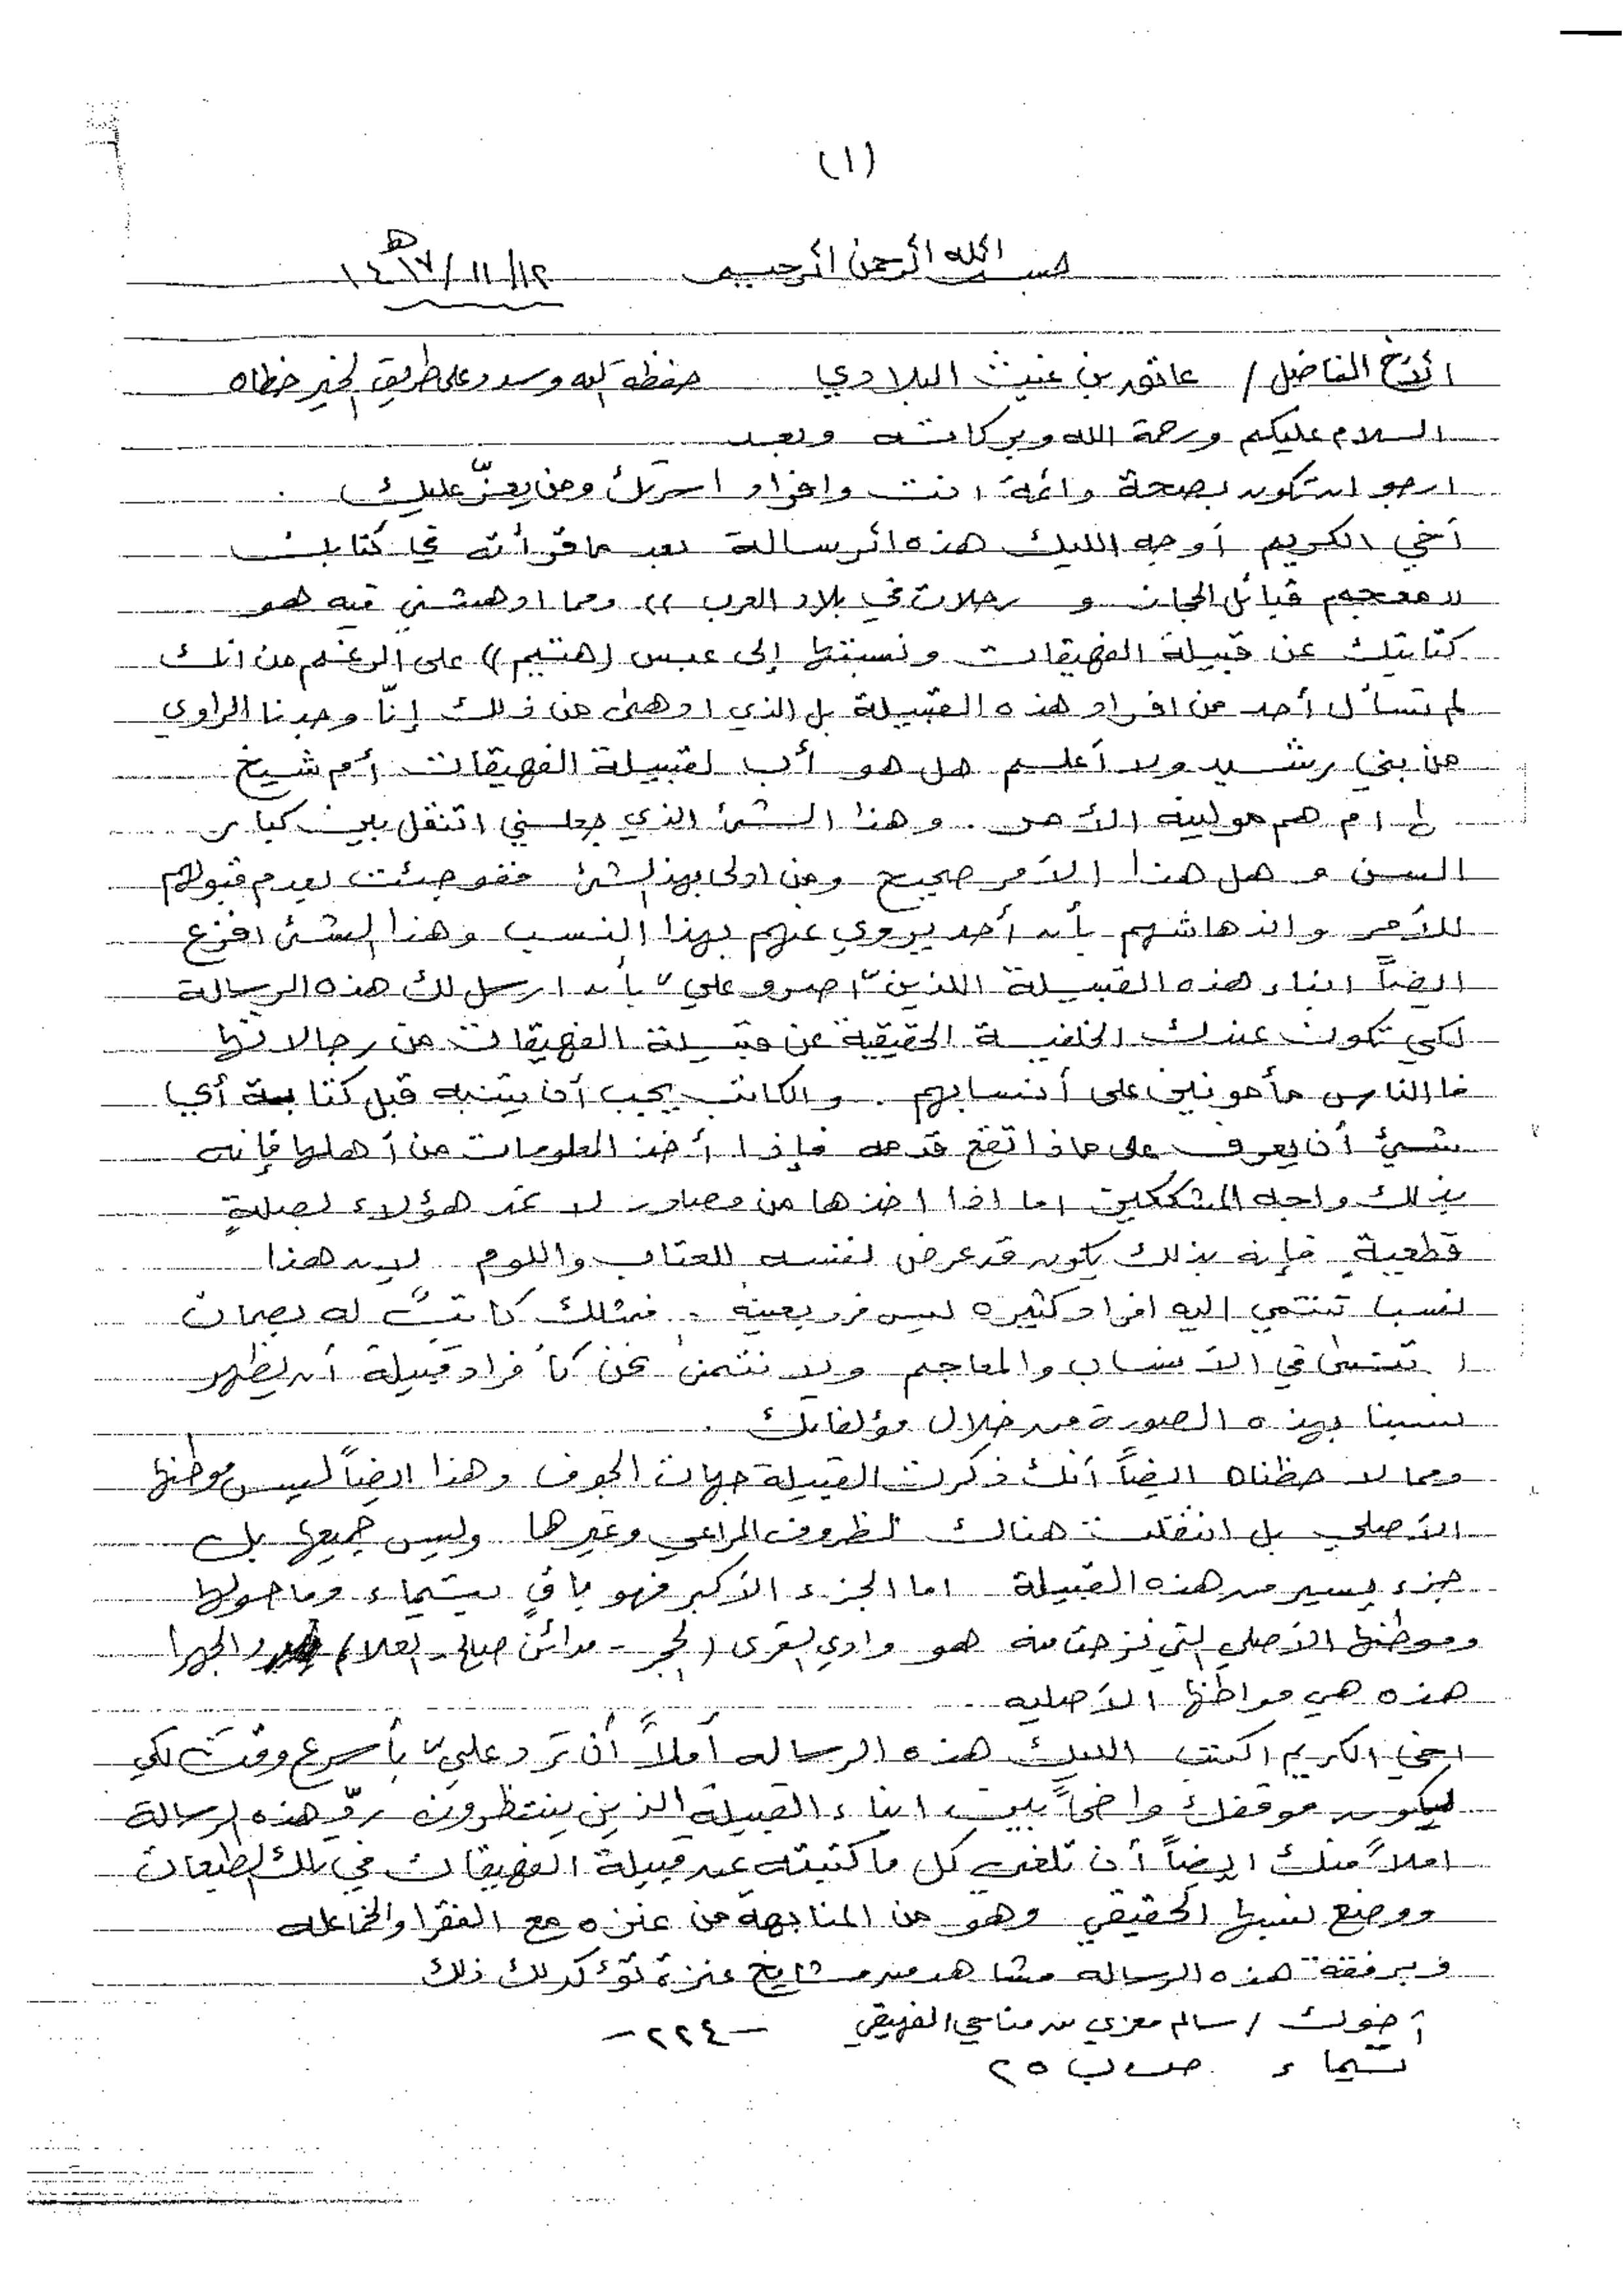 (١)
بسم الله الرحمن الرحيم ١٤١٧/١١/١٢ هـ
الأخ الفاضل / عاتق بن غيث البلادي حفظه الله وسدد على طريق الخير خطاه
السلام عليكم ورحمة الله وبركاته وبعد
ارجو ان تكون بصحة دائمة انت وافراد اسرتك ومن يعزّ عليك .
أخي الكريم أوجه اليك هذه الرسالة بعد ما قرأته في كتابك
(( معجم قبائل الحجاز و رحلات في بلاد العرب )) ومما ادهشني فيه هو
كتابتك عن قبيلة الفهيقات ونسبتها إلى عبس (هتيم)) على الرغم من انك
لم تسأل أحد من افراد هذه القبيلة بل الذي ادهى من ذلك إنّا وجدنا الراوي
من بني رشيد ولا أعلم هل هو أب لقبيلة الفهيقات أم شيخ
ام هم مولينه الأمر . وهذا الشئ الذي جعلني اتنقل بين كبار
السن و هل هذا الأمر صحيح ومن ادلى بهذا الشئ ففوجئت بعدم قبولهم
للأمر واندهاشهم بأن أحد يروي عنهم بهذا النسب وهذا الشئ افزع
ايضاً ابناء هذه القبيلة اللذين اصرو علي بأن ارسل لك هذه الرسالة
لكي تكون عندك الخلفية الحقيقية عن قبيلة الفهيقات من رجالاتها
فا الناس مأمونين على أنسابهم . والكاتب يجب أن يتنبه قبل كتابة أي
شئ أن يعرف على ماذا تقع قدمه فإذا أخذ المعلومات من أهلها فإنه
بذلك واجه المشككين اما اذا اخذها من مصادر لا تمد هؤلاء بصلةٍ
قطعيةٍ فإنه بذلك يكون قد عرض نفسه للعتاب واللوم لإن هذا
نسبا تنتمي اليه افراد كثيره ليس فرد بعينه . فمثلك كاتبٌ له بصمات
لا تنسى في الأنساب والمعاجم ولا نتمنى نحن كأفراد قبيلة أن يظهر
نسبنا بهذه الصورة من خلال مؤلفاتك .
ومما لاحظناه ايضاً أنك ذكرت القبيلة جهات الجوف وهذا ايضاً ليس موطنها
الأصلي بل انتقلت هناك لظروف المراعي وغيرها وليس جميعها بل
جزء يسير من هذه القبيلة اما الجزء الأكبر فهو باقٍ بتيماء وما حولها
وموطنها الأصلي التي نزحت منه هو وادي القرى (الحجر - مدائن صالح - العلا) والجهرا
هذه هي مواطنها الأصليه
اخي الكريم اكتب اليك هذه الرساله أملاً أن ترد علي بأسرع وقت لكي
ليكون موقفك واضحاً بين ابناء القبيلة الذين ينتظرون ردّ هذه الرسالة
املاً منك ايضاً أن تلغي كل ما كتبته عن قبيلة الفهيقات في تلك الطبعات
ووضع نسبها الحقيقي وهو من المنابهة من عنزه مع الفقرا والخماعله
وبرفقة هذه الرساله مشاهد من مشايخ عنزة تؤكد لك ذلك
أخوك / سالم معزي بن مناحي الفهيقي - ٢٢٤ -
تيماء ص ب ٢٥